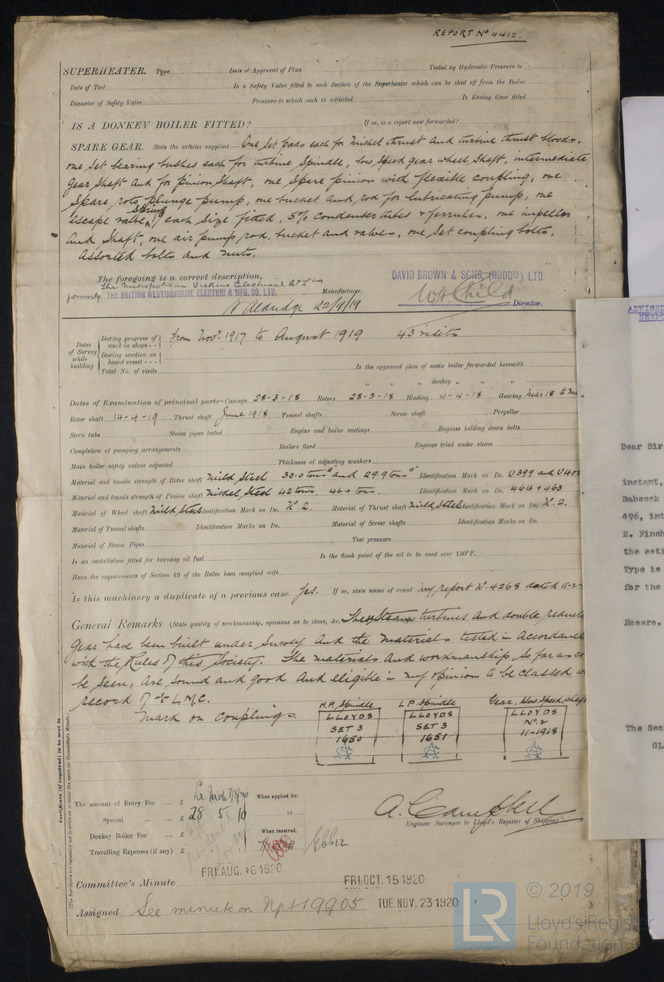 REPORT No 4412.
SUPERHEATER. Type Date of Approval of Plan Tested by Hydraulic Pressure to
Date of Test Is a Safety Valve fitted to each Section of the Superheater which can be shut off from the Boiler
Diameter of Safety Valve Pressure to which each is adjusted Is Easing Gear fitted
IS A DONKEY BOILER FITTED? If so, is a report now forwarded?
SPARE GEAR. State the articles supplied:— One set pads each for michel thrust and turbine thrust blocks,
one set bearing bushes each for turbine spindle, low speed gear wheel shaft, intermediate
gear shaft and for pinion shaft, one spare pinion with flexible coupling, one
spare roto plunge pump, one bucket and rod for lubricating pump, one
escape valve spring, each size fitted, 5% condenser tubes & ferrules, one impeller
and shaft, one air pump rod, bucket and valves, one set coupling bolts,
assorted bolts and nuts.
The foregoing is a correct description,
The Metropolitan Vickers Electrical Co Ltd
formerly THE BRITISH WESTINGHOUSE ELECTRIC & MFG. CO. LTD. Manufacturer.
DAVID BROWN & SONS, (HUDDD) LTD.
W H Child Director.
Aldridge 22/9/19
Dates of Survey while building
During progress of work in shops - - from Novr. 1917 to August 1919 43 visits
During erection on board vessel - - -
Total No. of visits
Is the approved plan of main boiler forwarded herewith
" " " donkey " " "
Dates of Examination of principal parts—Casings 28-3-18 Rotors 28-3-18 Blading 4-4-18 Gearing
Rotor shaft 14-4-19 Thrust shaft June 1918 Tunnel shafts Screw shaft Propeller
Stern tube Steam pipes tested Engine and boiler seatings Engines holding down bolts
Completion of pumping arrangements Boilers fixed Engines tried under steam
Main boiler safety valves adjusted Thickness of adjusting washers
Material and tensile strength of Rotor shaft Mild Steel 30.0 tons and 29.9 tons Identification Mark on Do. V399 and
Material and tensile strength of Pinion shaft Nickel Steel 42 tons 46.0 tons Identification Mark on Do. 464 & 463
Material of Wheel shaft Mild Steel Identification Mark on Do. No. 2. Material of Thrust shaft Mild Steel Identification Mark on Do. No. 2.
Material of Tunnel shafts Identification Marks on Do. Material of Screw shafts Identification Marks on Do.
Material of Steam Pipes Test pressure
Is an installation fitted for burning oil fuel Is the flash point of the oil to be used over 150°F.
Have the requirements of Section 49 of the Rules been complied with
Is this machinery a duplicate of a previous case Yes. If so, state name of vessel my report No. 4268 dated
General Remarks (State quality of workmanship, opinions as to class, &c. These steam turbines and double
gear have been built under survey and the materials tested in accordance
with the Rules of this Society. The materials and workmanship so far as
be seen, are sound and good and eligible in my opinion to be classed
record of L.M.C.
Mark on couplings.
H.P. Spindle L.P. Spindle Gear. Slow Speed shaft
LLOYDS LLOYDS LLOYDS
SET 3 SET 3 No. 2
1650 1651 11-1918
Certificate (if required) to be sent to
(The Surveyors are requested not to write on or below the space for Committee's Minute)
The amount of Entry Fee ... £ When applied for,
Special ... ... £ 28 : 5 :
Donkey Boiler Fee ... £ When received,
Travelling Expenses (if any) £
A. Campbell
Engineer Surveyor to Lloyd's Register of Shipping.
FRI. AUG. 1920
FRI. OCT. 15 1920
Committee's Minute
TUE. NOV. 23 1920
Assigned See minute on Npt 19905
Dear Sir
instant,
Babcock
496, in
E. Finch
the
Type is
for the
Messrs.
The Sec
GL
LR
© 2019
Lloyd's Register
Foundation